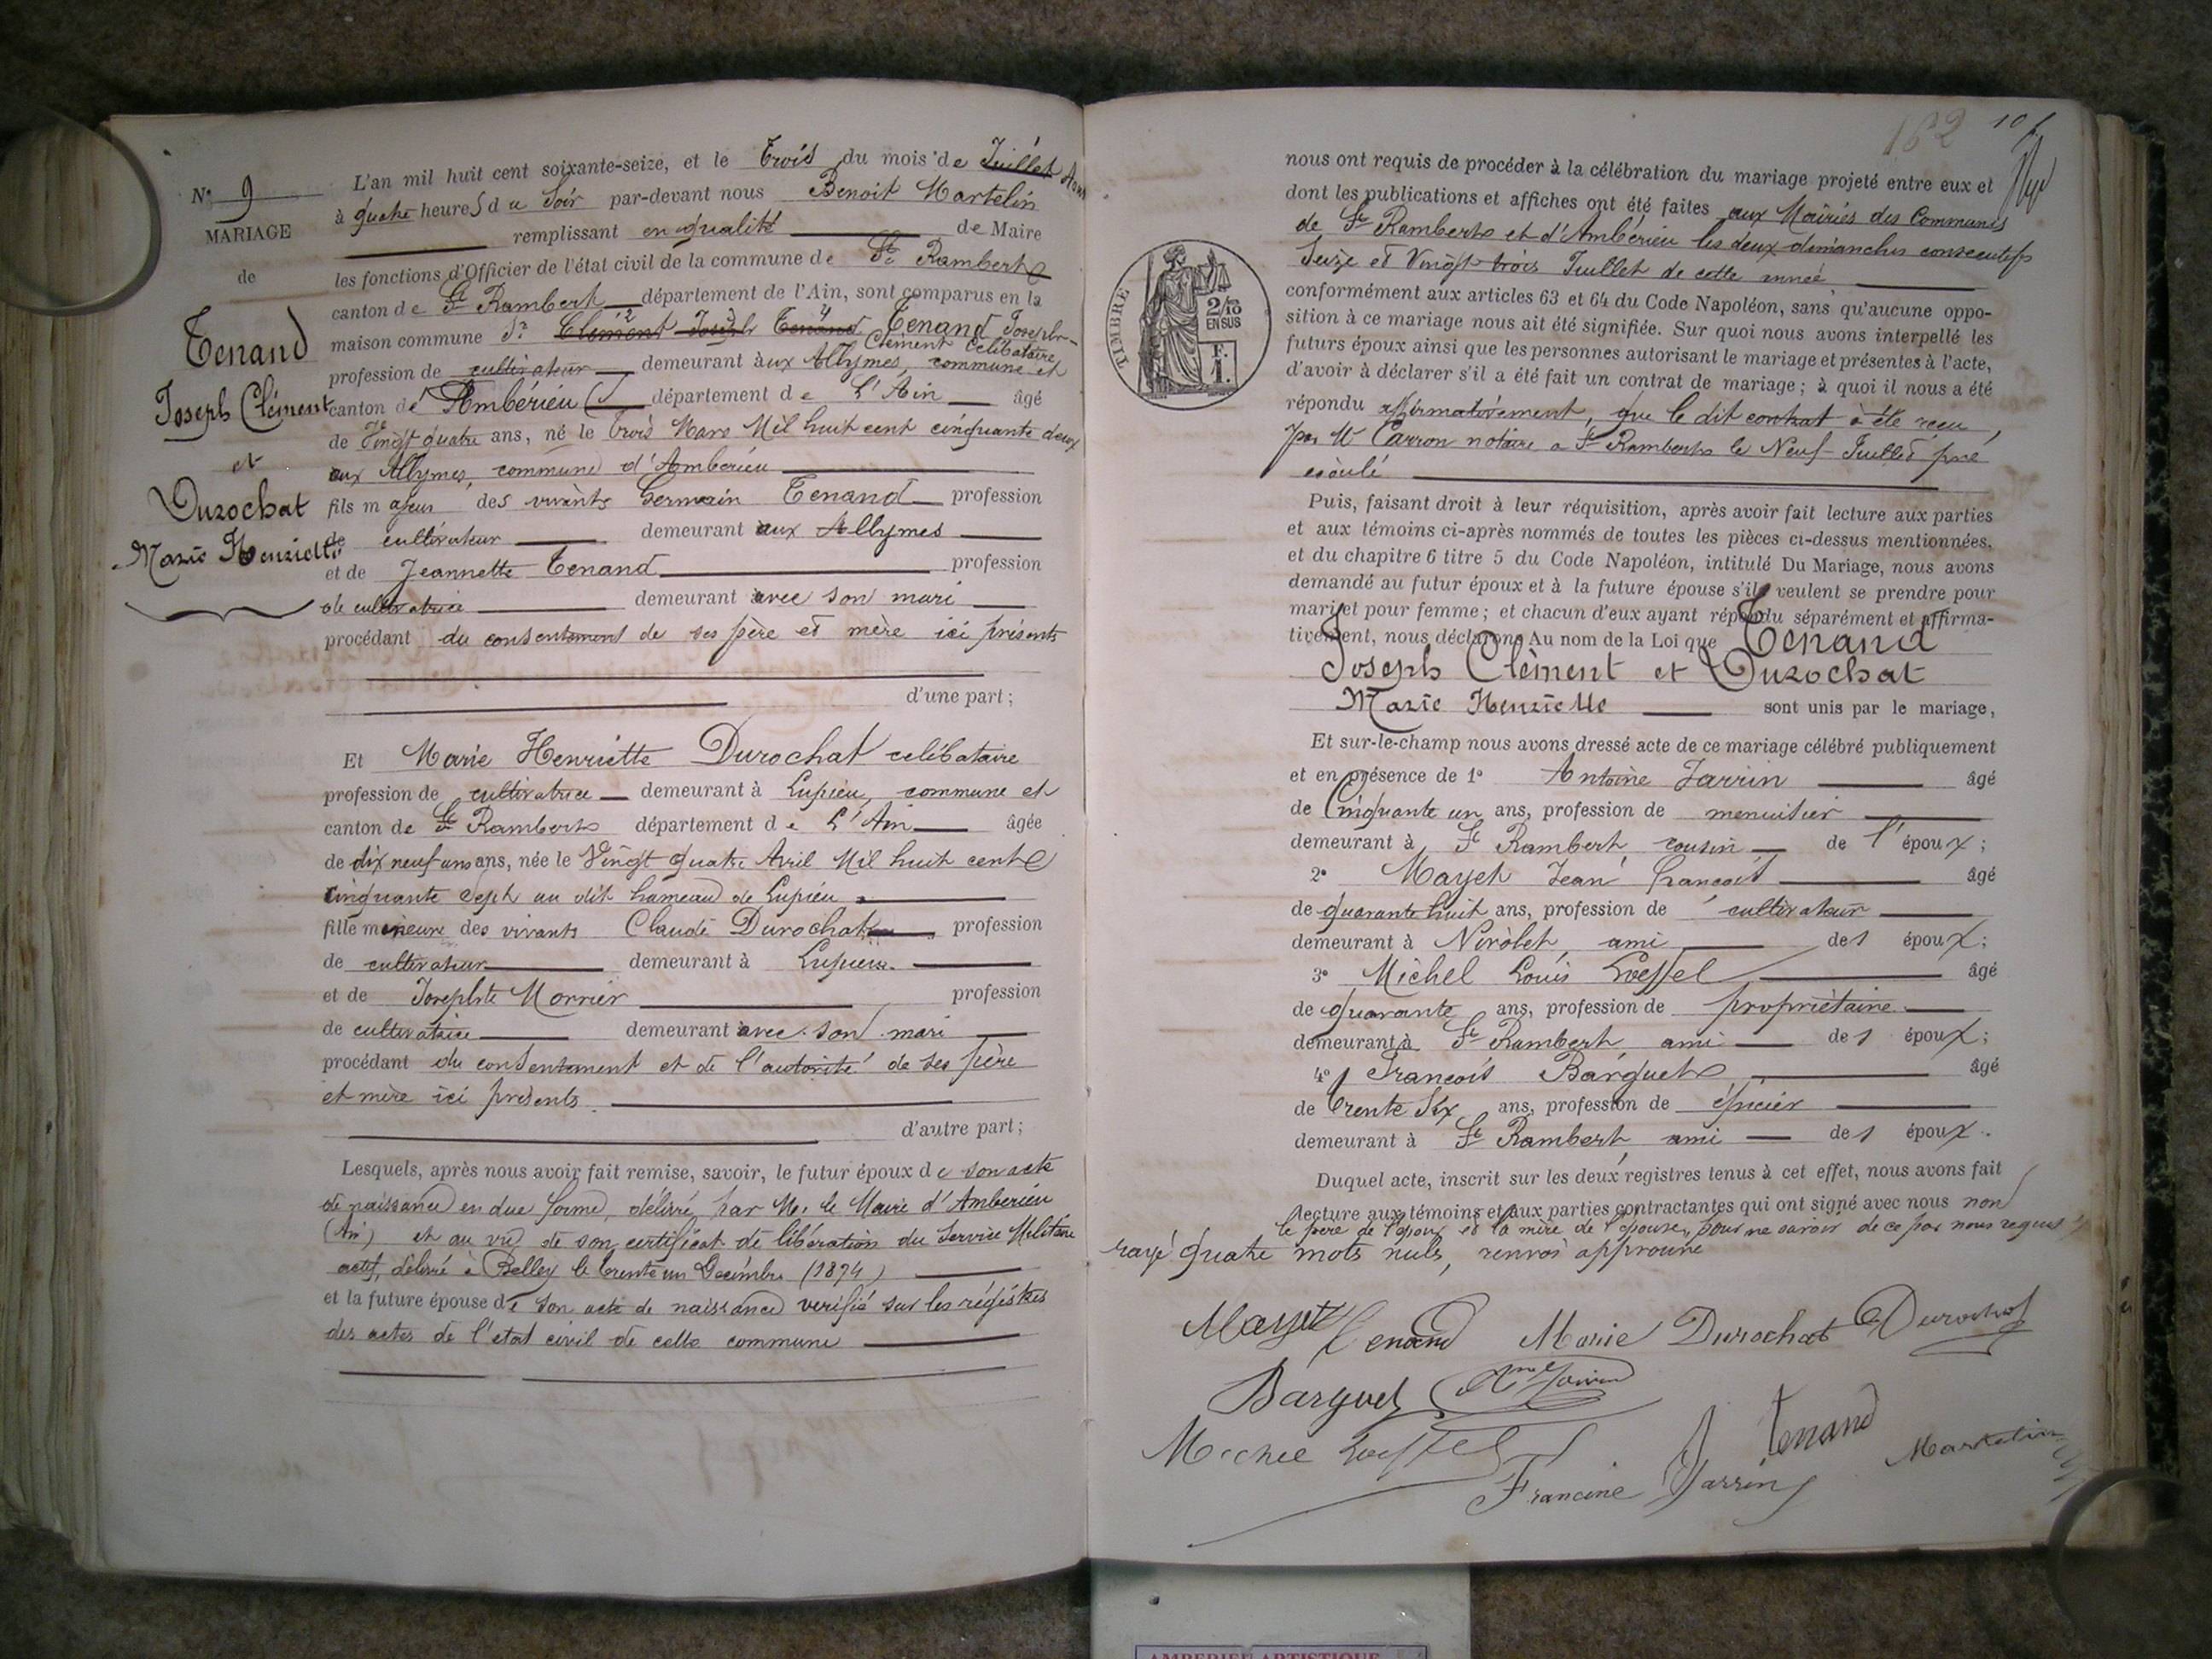 N° 9
MARIAGE
de
Tenand
Joseph Clément
et
Durochat
Marie Henriette
L'an mil huit cent soixante-seize, et le trois du mois de Juillet Aout
à quatre heures du Soir par-devant nous Benoit Martelin
remplissant en qualité de Maire
les fonctions d'Officier de l'état civil de la commune de St Rambert
canton de St Rambert département de l'Ain, sont comparus en la
maison commune Sr Clément Joseph Tenand Tenand Joseph-
Clément Celibataire,
profession de cultivateur demeurant aux Allymes, commune et
canton de d'Ambérieu département de L'Ain âgé
de Vingt quatre ans, né le trois Mars Mil huit cent cinquante deux
aux Allymes, commune d'Amberieu
fils majeur des vivants Germain Tenand profession
de cultivateur demeurant aux Allymes
et de Jeannette Tenand profession
de cultivatrice demeurant avec son mari
procédant du consentement de ses père et mère ici présents
d'une part;
Et Marie Henriette Durochat celibataire
profession de cultivatrice demeurant à Lupieu, commune et
canton de St Rambert département de L'Ain âgée
de dix neuf ans ans, née le Vingt quatre Avril Mil huit cent
cinquante Sept au dit hameau de Lupieu
fille mineure des vivants Claude Durochat profession
de cultivateur demeurant à Lupieu
et de Josephte Morrier profession
de cultivatrice demeurant avec son mari
procédant du consentement et de l'autorité de ses père
et mère ici présents
d'autre part;
Lesquels, après nous avoir fait remise, savoir, le futur époux de son acte
de naissance en due forme, délivré par Mr le Maire d'Amberieu
(Ain) et au vu de son certificat de libération du Service Militaire
actif, délivré à Belley le trente un Decembre (1874)
et la future épouse de son acte de naissance verifié sur les régistres
des actes de l'etat civil de cette commune
162
nous ont requis de procéder à la célébration du mariage projeté entre eux et
dont les publications et affiches ont été faites aux Mairies des Communes
de St Rambert et d'Ambérieu les deux dimanches consecutifs
Seize et Vingt trois Juillet de cette année
conformément aux articles 63 et 64 du Code Napoléon, sans qu'aucune oppo-
sition à ce mariage nous ait été signifiée. Sur quoi nous avons interpellé les
futurs époux ainsi que les personnes autorisant le mariage et présentes à l'acte,
d'avoir à déclarer s'il a été fait un contrat de mariage; à quoi il nous a été
répondu affirmativement, que le dit contrat à été recu
par Me Carron notaire a St Rambert le Neuf Juillet
TIMBRE
2/10
EN SUS
F.
1.
Puis, faisant droit à leur réquisition, après avoir fait lecture aux parties
et aux témoins ci-après nommés de toutes les pièces ci-dessus mentionnées,
et du chapitre 6 titre 5 du Code Napoléon, intitulé Du Mariage, nous avons
demandé au futur époux et à la future épouse s'ils veulent se prendre pour
mari et pour femme; et chacun d'eux ayant répondu séparément et affirma-
tivement, nous déclarons Au nom de la Loi que Tenand
Joseph Clément et Durochat
Marie Henriette sont unis par le mariage,
Et sur-le-champ nous avons dressé acte de ce mariage célébré publiquement
et en présence de 1° Antoine Jarrin âgé
de Cinquante un ans, profession de menuisier
demeurant à St Rambert cousin de l'époux;
2° Mayet Jean François âgé
de quarante huit ans, profession de cultivateur
demeurant à Nivolet, ami de l époux;
3° Michel Louis Loeffel âgé
de quarante ans, profession de propriétaire
demeurant à St Rambert, ami de l époux;
4° François Barguet âgé
de trente Six ans, profession de épicier
demeurant à St Rambert, ami de l époux.
Duquel acte, inscrit sur les deux registres tenus à cet effet, nous avons fait
lecture aux témoins et aux parties contractantes qui ont signé avec nous non
le père de l'époux et la mère de l'epouse, pour ne savoir de ce par nous requis
rayé quatre mots nuls, renvoi approuvé
Mayet Tenand Marie Durochat Durochat
Barguet
Michel Loeffel Tenand Martelin
Francine Jarrin
AMBERIEU ARTISTIQUE